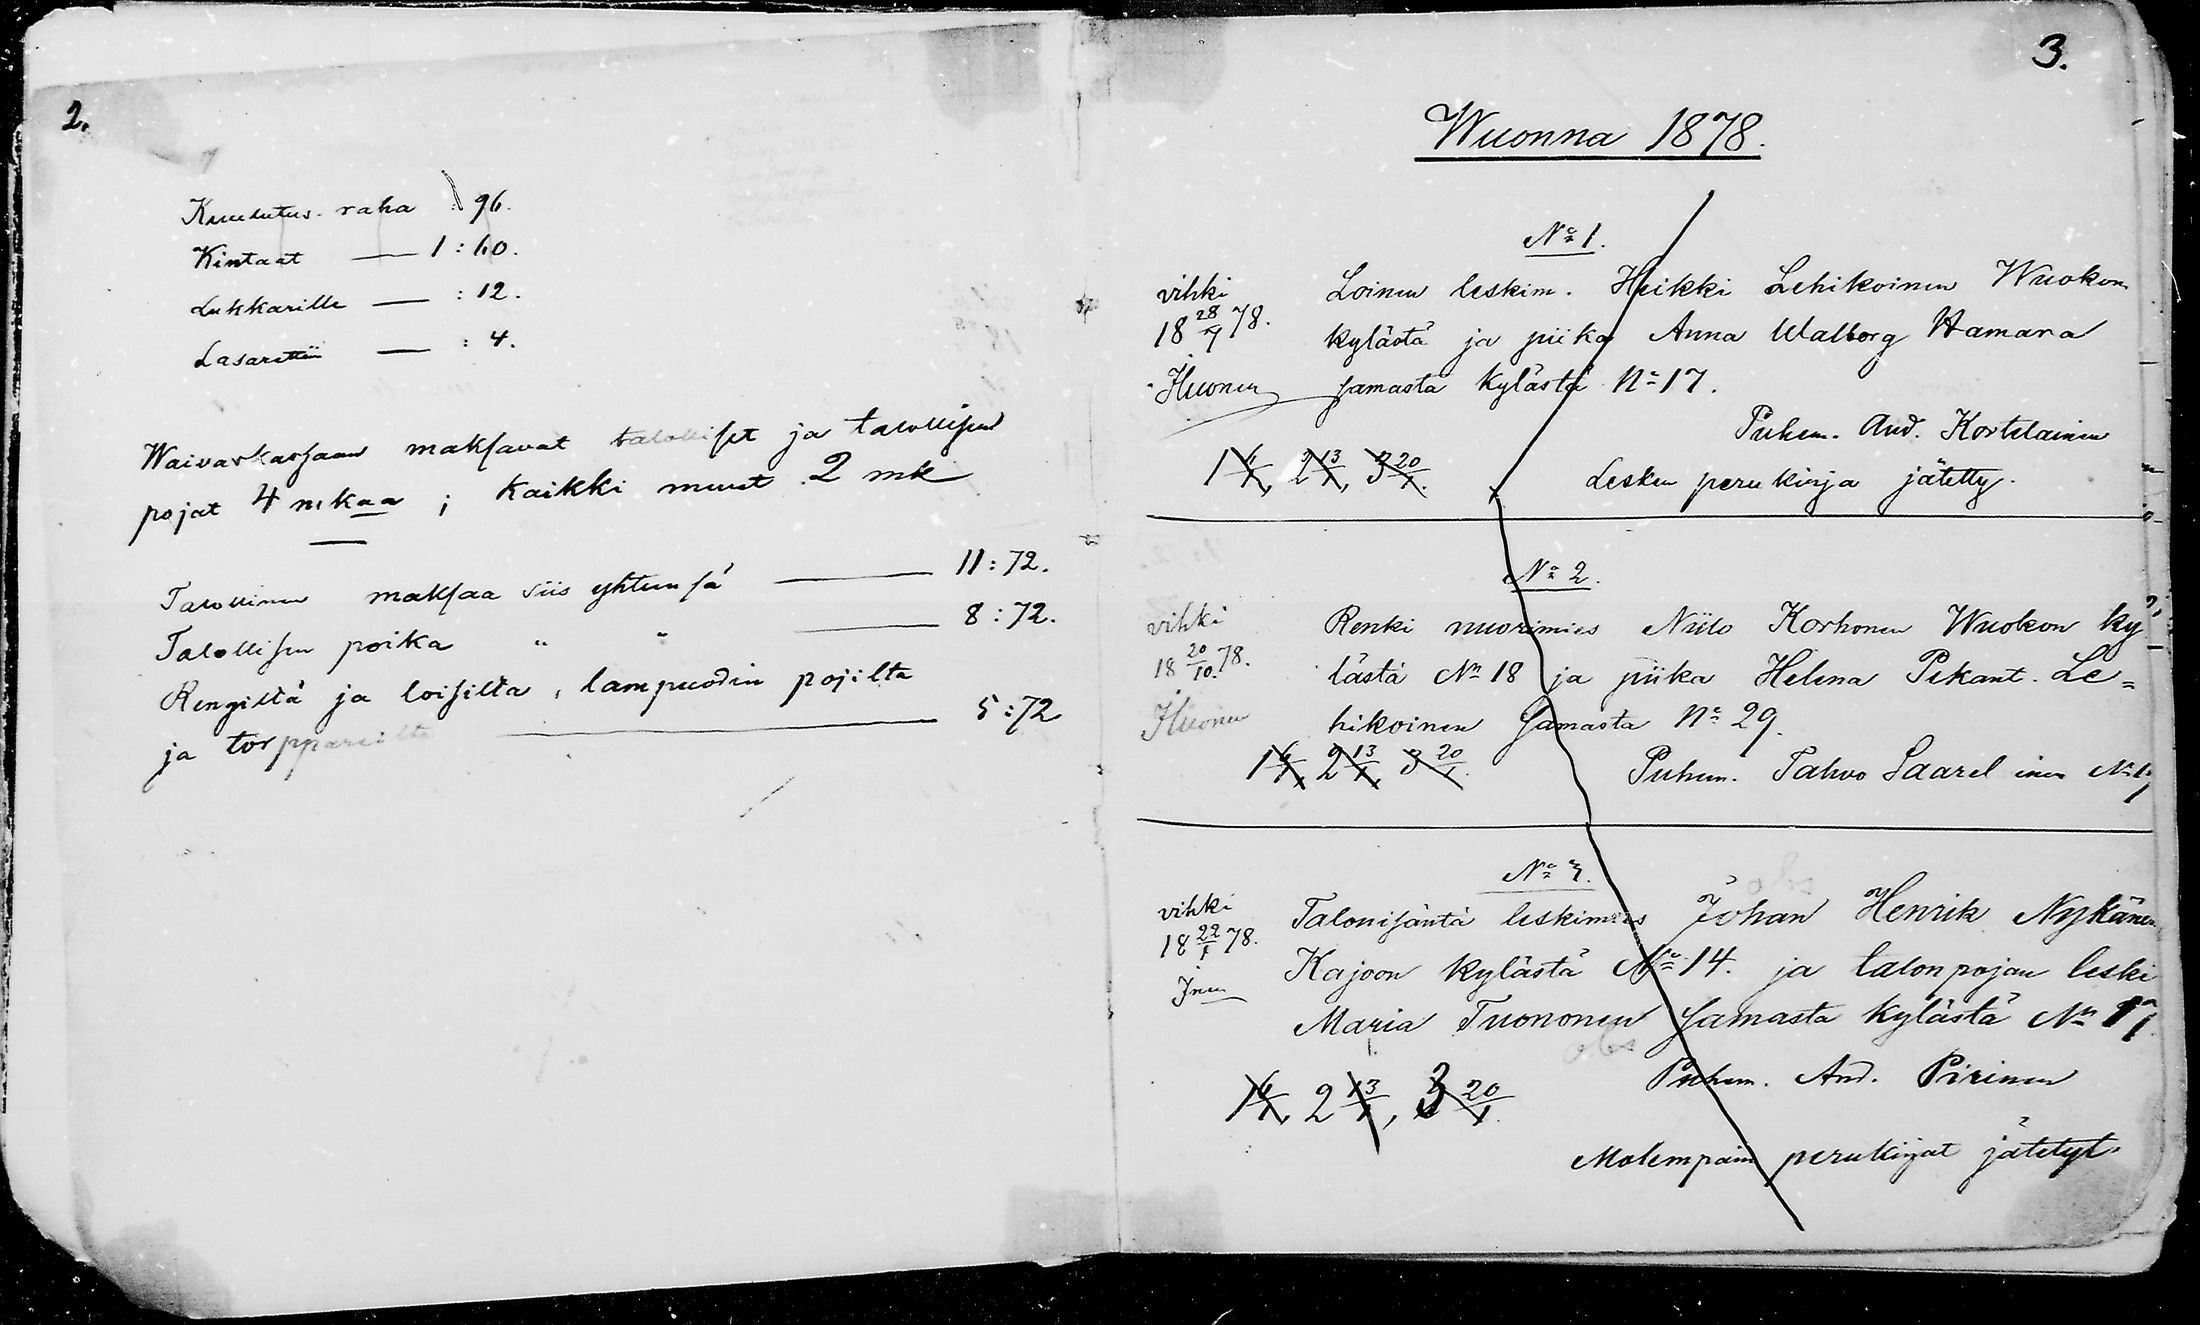 2.
Kuulutus-raha : 96.
Kintaat — 1 : 60.
Lukkarille — : 12.
Lasarettiin — : 4.
Waivaskassaan maksavat talolliset ja talollisen
pojat 4 mkaa ; kaikki muut 2 mk
Talollinen maksaa siis yhteensä — 11 : 72.
Talollisen poika " " — 8 : 72.
Rengiltä ja loisilta, lampuodin pojilta
ja torppareilta — 5 : 72
3.
Wuonna 1878.
No 1.
vihki
18 28/4 78.
Ihuonen
Loinen leskim. Heikki Lehikoinen Wuokon
kylästä ja piika Anna Walborg Hamara
samasta kylästä No 17.
Puhem. And. Kortelainen
1 6/1, 2 13/1, 3 20/1.
Lesken perukirja jätetty.
No 2.
vihki
18 20/10 78.
Ihuonen
Renki nuorimies Niilo Korhonen Wuokon ky
lästä No 18 ja piika Helena Pekant. Le=
hikoinen samasta No 29.
1 6/1, 2 13/1, 3 20/1.
Puhem. Tahvo Saarelainen No
No 3.
vihki
18 22/1 78.
Talonisäntä leskimies Johan Henrik Nykänen
Kajoon kylästä No 14. ja talonpojan leski
Maria Tuononen samasta kylästä No
Puhem. And. Piirinen
1 6/1, 2 13/1, 3 20/1.
Molempain perukirjat jätetyt.